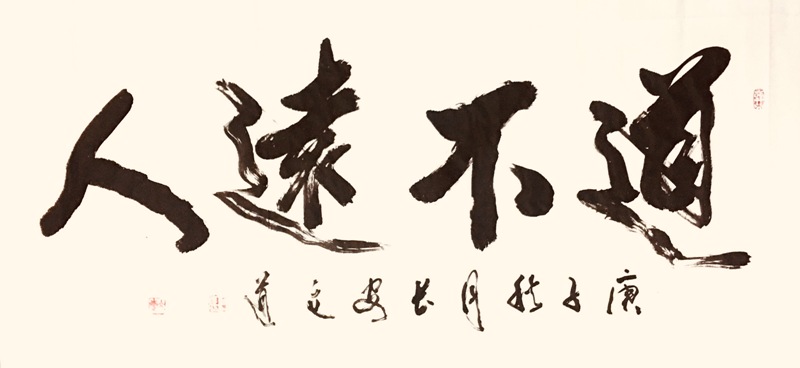 道不遠人
庚子秋月長安之道